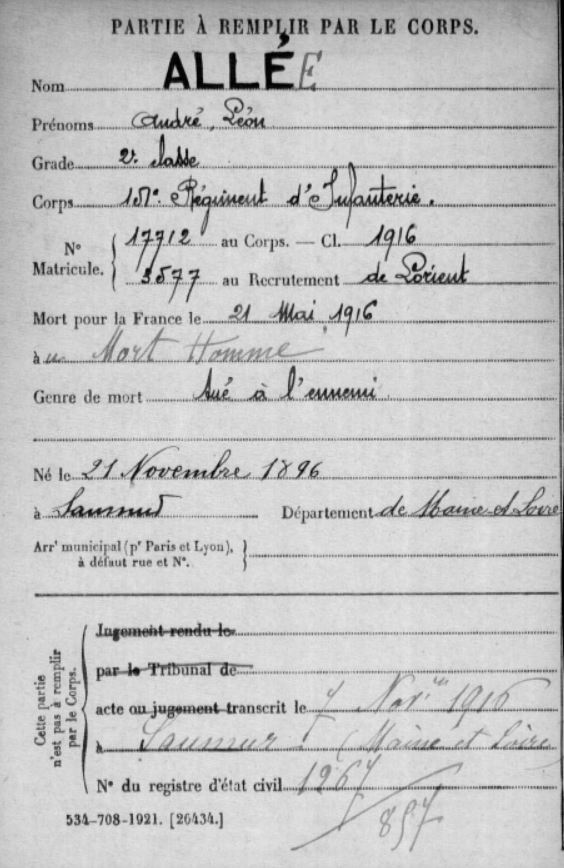 PARTIE À REMPLIR PAR LE CORPS.
Nom ALLÉE
Prénoms André, Léon
Grade 2e classe
Corps 151e Régiment d'Infanterie.
N° Matricule. 17712 au Corps. — Cl. 1916
3577 au Recrutement de Lorient
Mort pour la France le 21 Mai 1916
à Mort Homme
Genre de mort tué à l'ennemi
Né le 21 Novembre 1896
à Saumur Département de Maine et Loire
Arrt municipal (pr Paris et Lyon),
à défaut rue et N°.
Cette partie
n'est pas à remplir
par le Corps.
Jugement rendu le
par le Tribunal de
acte ou jugement transcrit le 7 Nov. 1916
à Saumur (Maine et Loire)
N° du registre d'état civil 1267
897
534-708-1921. [26434.]